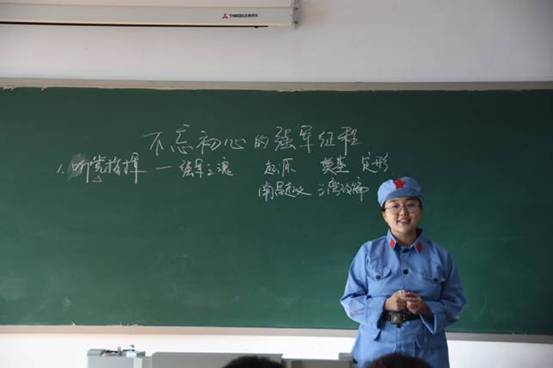 不忘初心的强军征程
1. 听党指挥 — 强军之魂 起源 奠基 定形
南昌起义 三湾改编